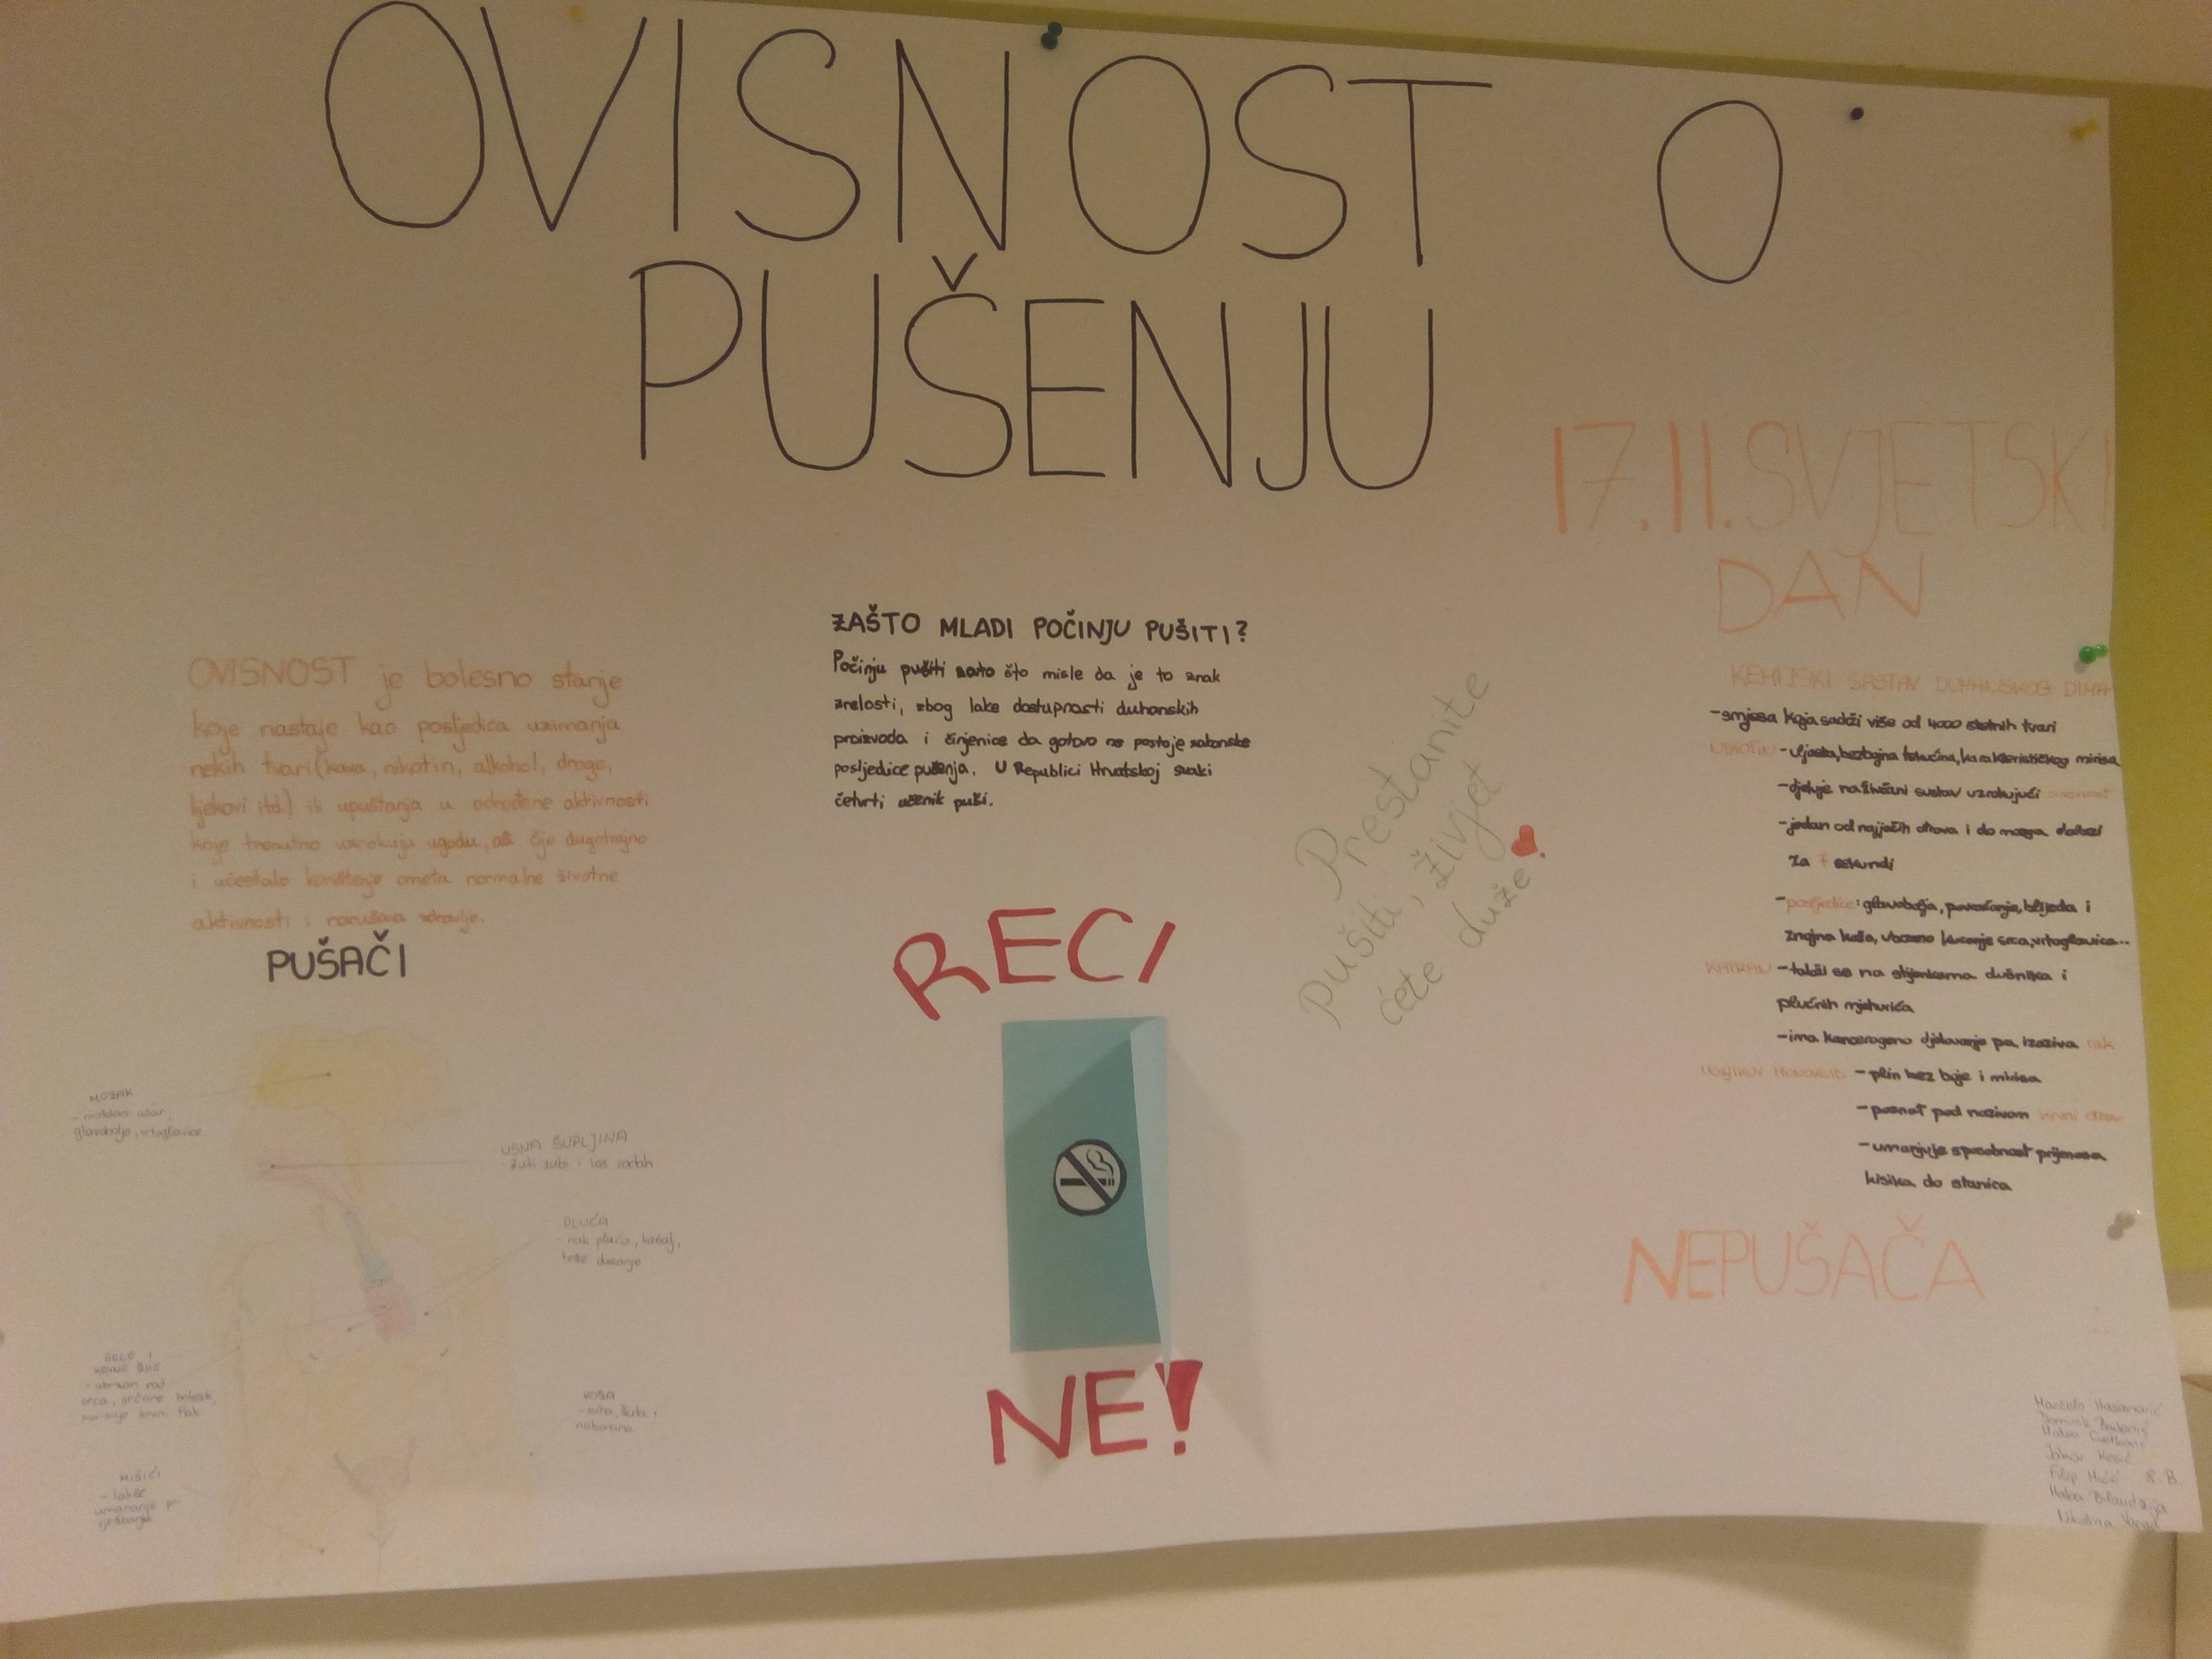 OVISNOST O
PUŠENJU
OVISNOST je bolesno stanje
koje nastaje kao posljedica uzimanja
nekih tvari (kava, nikotin, alkohol, droge,
lijekovi itd.) ili upuštanja u određene aktivnosti
koje trenutno uzrokuju ugodu, ali čije dugotrajno
i učestalo korištenje ometa normalne životne
aktivnosti i narušava zdravlje.
PUŠAČI
MOZAK
- moždani udar,
glavobolje, vrtoglavice
USNA ŠUPLJINA
- žuti zubi i loš zadah
PLUĆA
- rak pluća, kašalj,
teže disanje
SRCE I
KRVNE ŽILE
- ubrzan rad
srca, srčane bolesti,
krvni tlak
KOŽA
- suha, žuta i
naborana
MIŠIĆI
- lakše
umaranje
ZAŠTO MLADI POČINJU PUŠITI?
Počinju pušiti zato što misle da je to znak
zrelosti, zbog lake dostupnosti duhanskih
proizvoda i činjenice da gotovo ne postoje zakonske
posljedice pušenja. U Republici Hrvatskoj svaki
četvrti učenik puši.
RECI
NE!
Prestanite
pušiti, živjet
ćete duže
17.11. SVJETSKI
DAN
KEMIJSKI SASTAV DUHANSKOG DIMA
-smjesa koja sadži više od 4000 štetnih tvari
NIKOTIN -uljasta, bezbojna tekućina, karakterističkog mirisa
-djeluje na živčani sustav uzrokujući ovisnost
-jedan od najjačih otrova i do mozga dolazi
za 7 sekundi
-posljedice: glavobolja, povraćanje, blijeda i
znojna koža, ubrzano kucanje srca, vrtoglavica...
KATRAN -taloži se na stijenkama dušnika i
plućnih mjehurića
-ima kancerogeno djelovanje pa izaziva rak
UGLJIKOV MONOKSID -plin bez boje i mirisa
-poznat pod nazivom krvni otrov
-umanjuje sposobnost prijenosa
kisika do stanica
NEPUŠAČA
Marcelo Hasanović
Dominik
Mateo Cvetković
Jakov Kesić
Filip Mićić 8.B
Bilandžija
Nikolina Varga